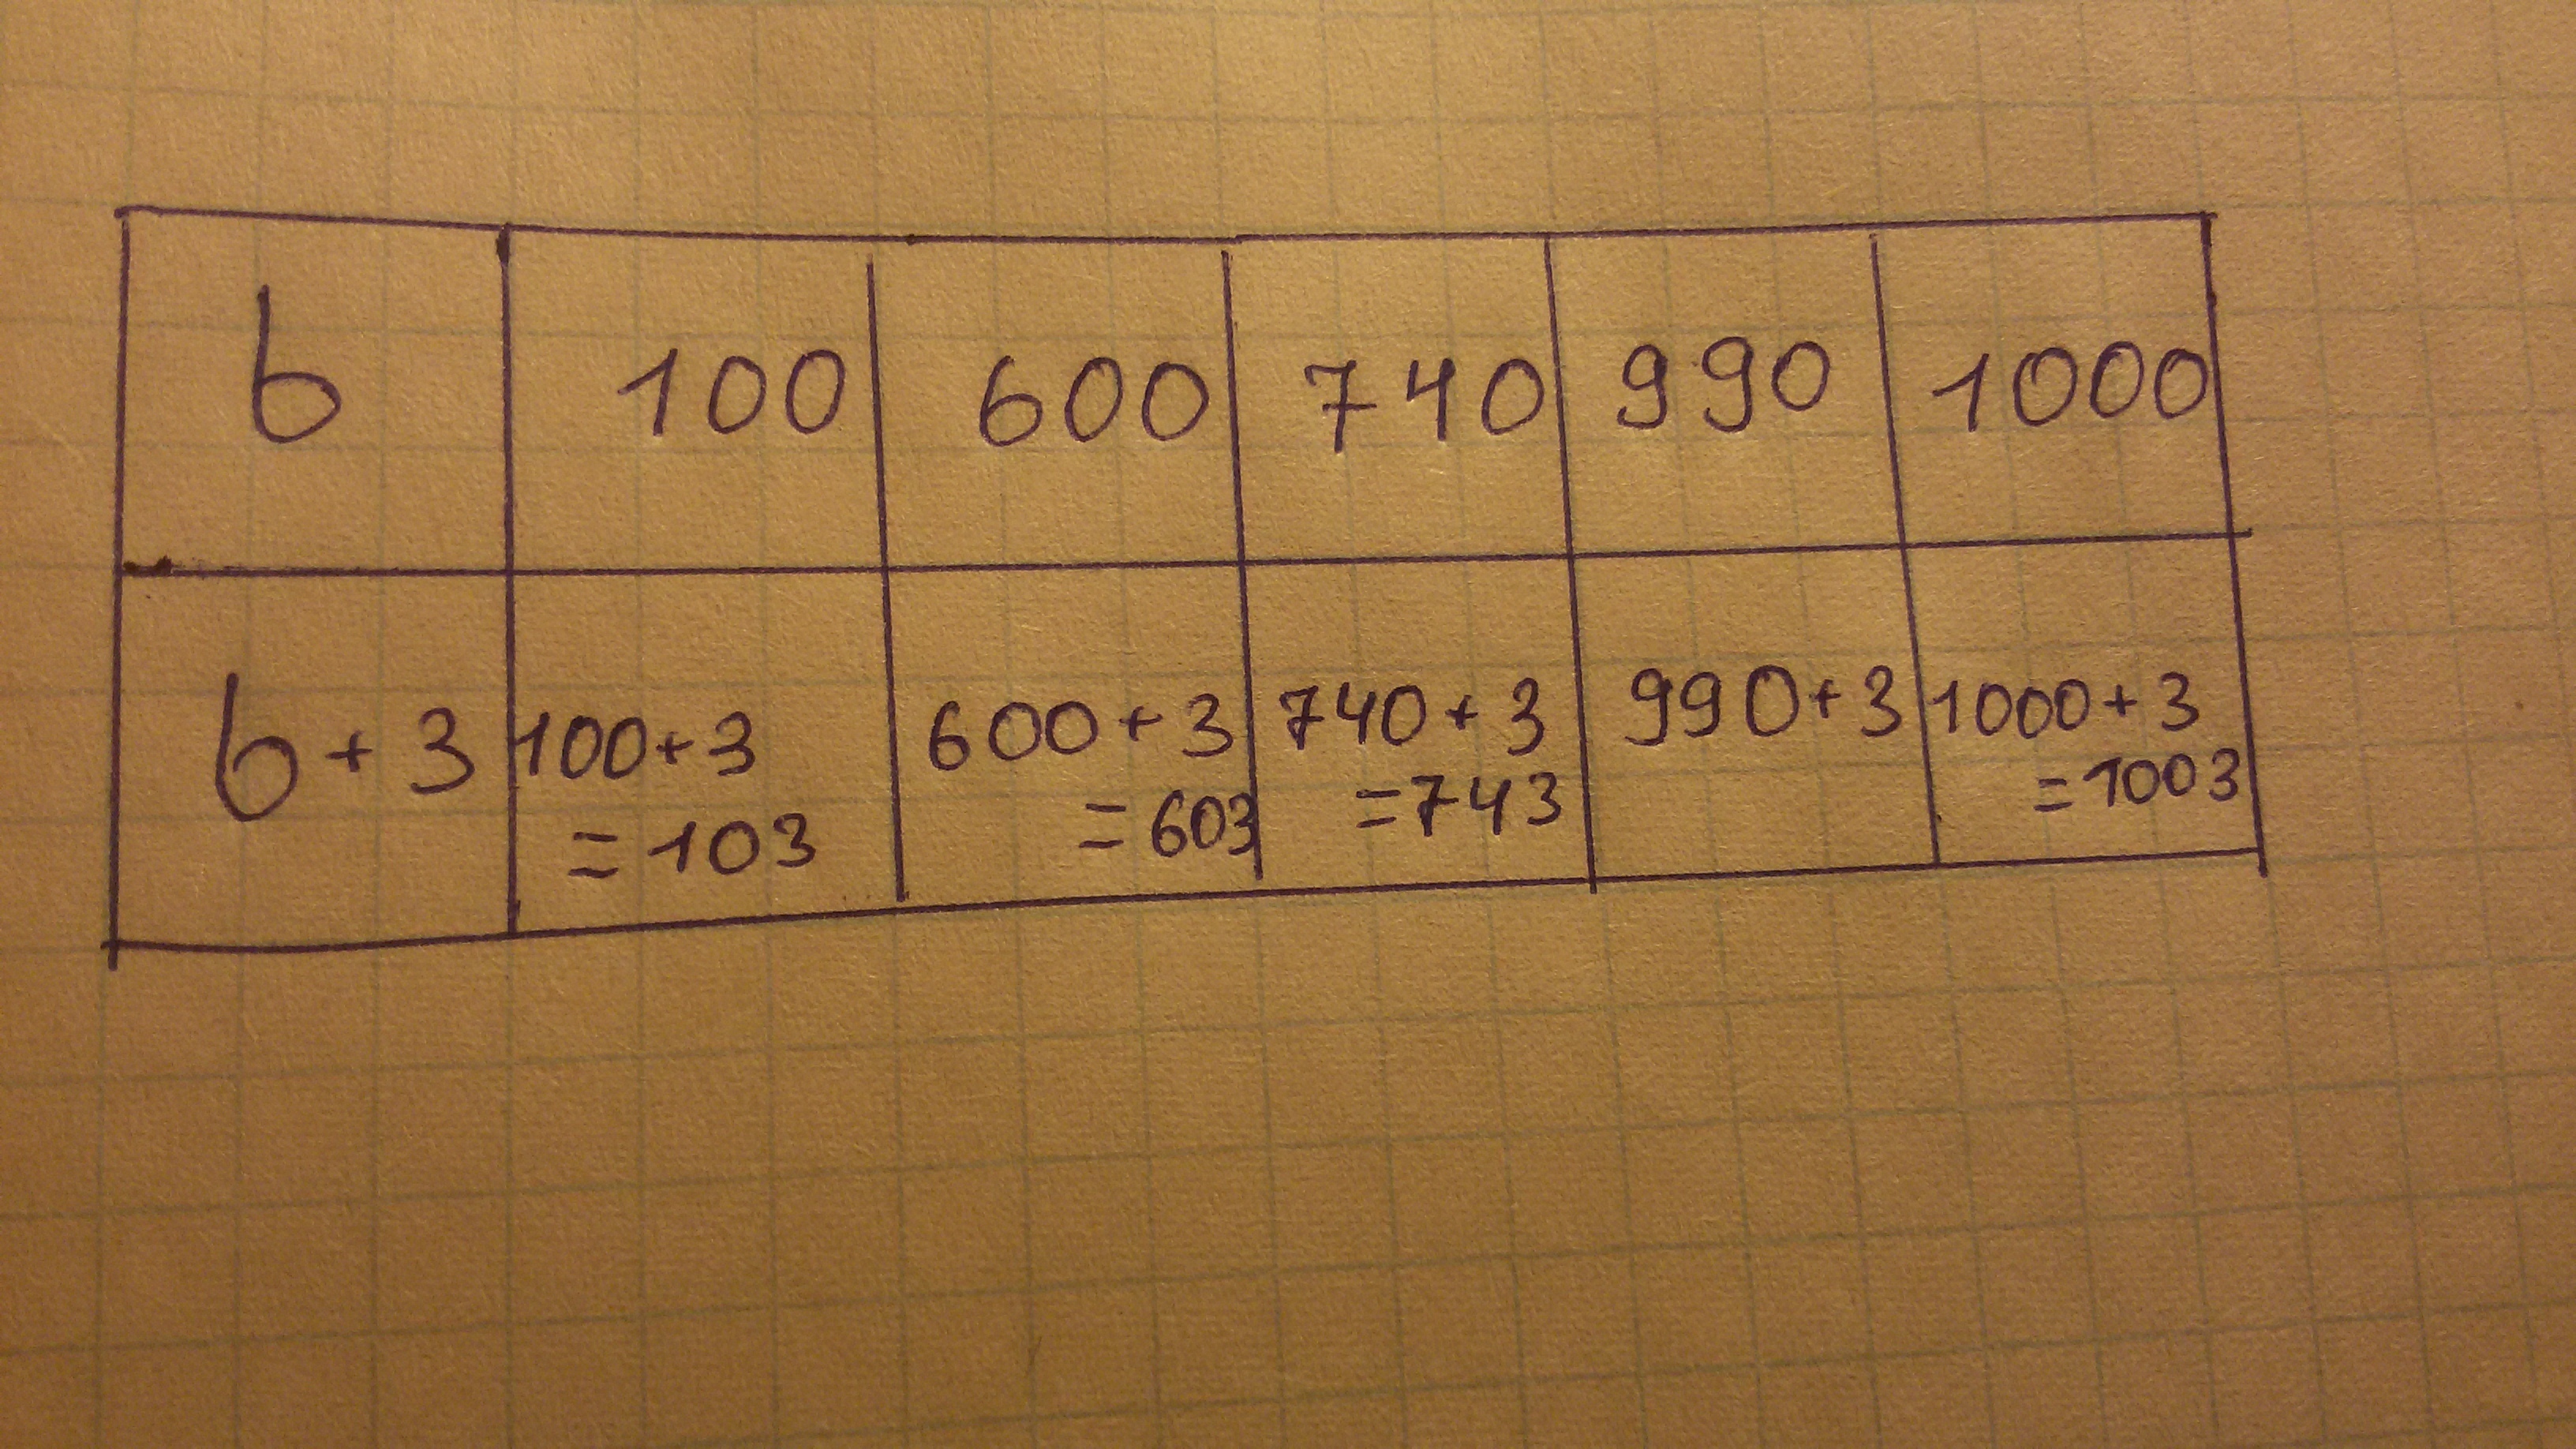 b 100 600 740 990 1000
b+3 100+3 600+3 740+3 990+3 1000+3
=103 =603 =743 =1003